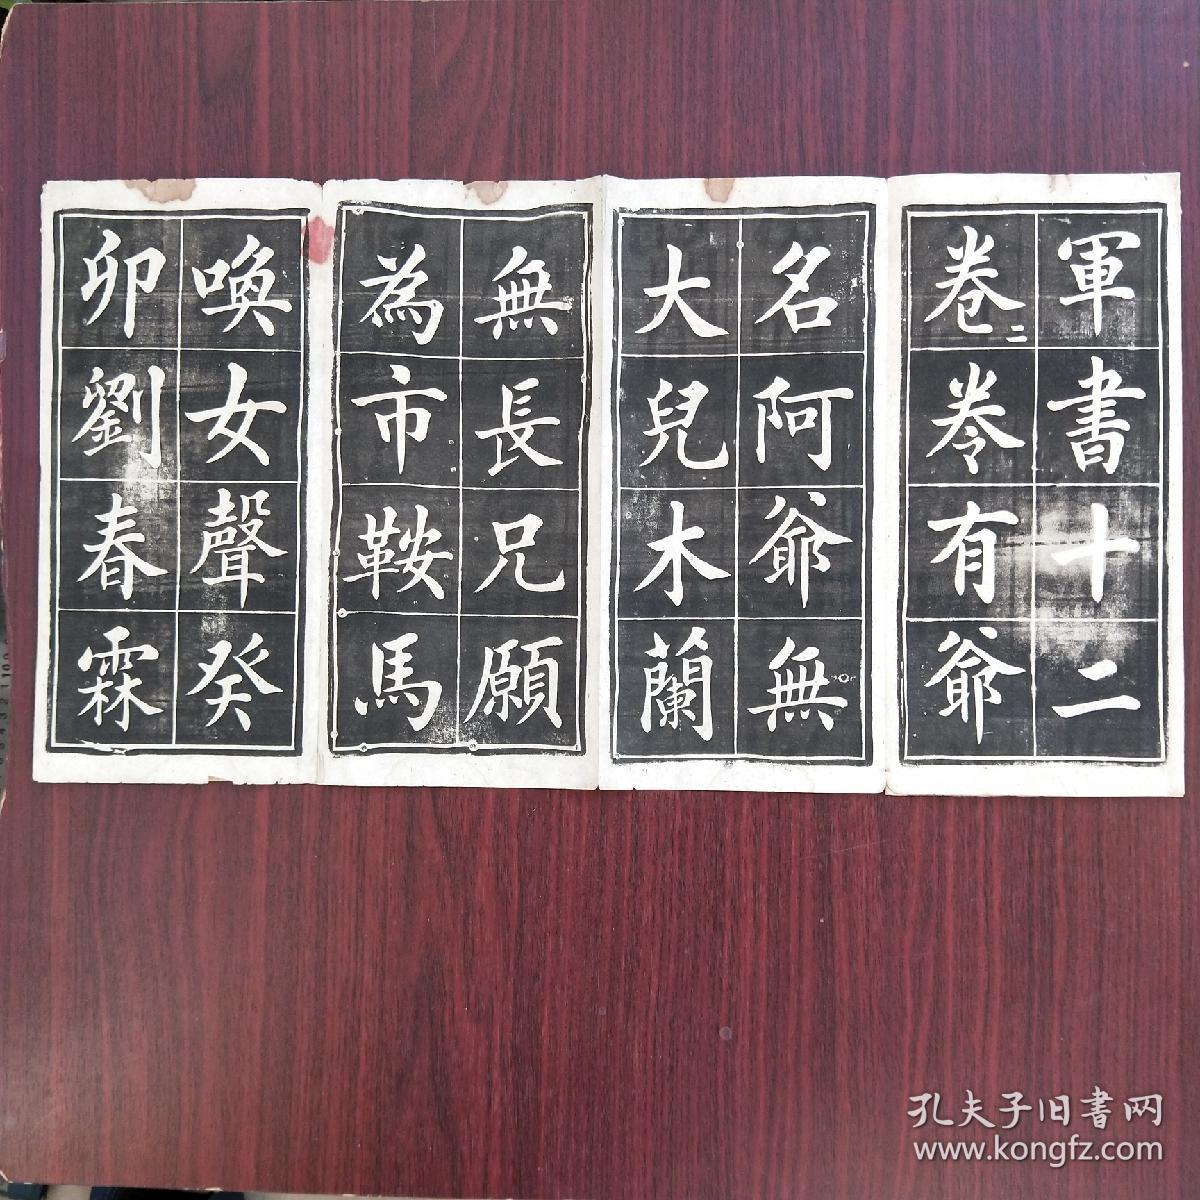 軍書十二
卷二卷有爺
名阿爺無
大兒木蘭
無長兄願
為市鞍馬
喚女聲癸
卯劉春霖
孔夫子旧書网
www.kongfz.com